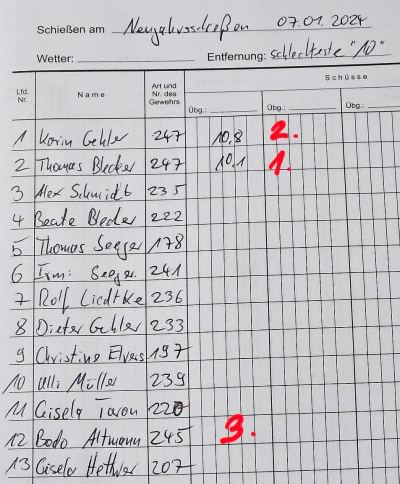 Schießen am Neujahrsschießen 07.01.2024
Wetter: Entfernung: schlechteste "10"
Lfd. Nr. Name Art und Nr. des Gewehrs Schüsse
Übg.: Übg.: Übg.:
1 Karin Gehler 247 10,8 2.
2 Thomas Blecker 247 10,1 1.
3 Alex Schmidt 235
4 Beate Blecker 222
5 Thomas Seeger 178
6 Irmi Seeger 241
7 Rolf Liedtke 236
8 Dieter Gehler 233
9 Christine Elvers 197
10 Ulli Müller 239
11 Gisela Taron 220
12 Bodo Altmann 245 3.
13 Gisela Hettwer 207